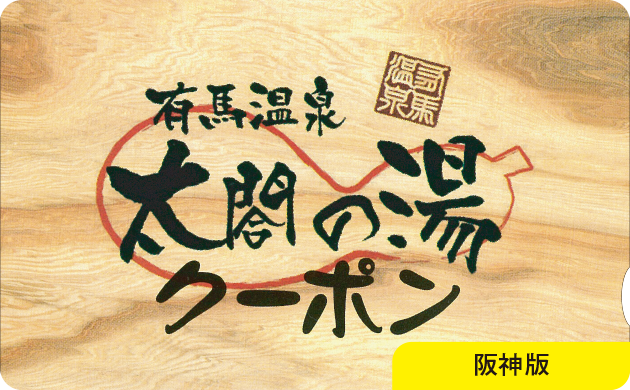 有馬温泉
有馬温泉
太閤の湯
クーポン
阪神版